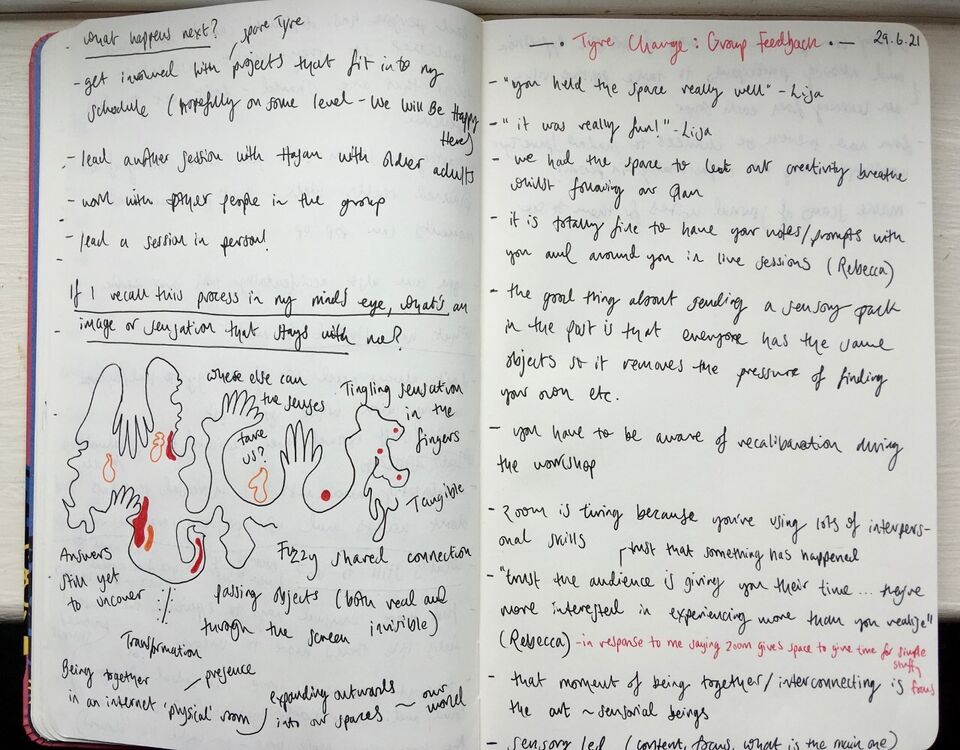 what happens next?
spare Tyre
- get involved with projects that fit into my
schedule (hopefully on some level - We Will Be Happy
Here)
- lead another session with Hasan with older adults
- work with other people in the group
- lead a session in person!
If I recall this process in my mind's eye, what's an
image or sensation that stays with me?
where else can
the senses
take
us?
Tingling sensation
in the
fingers
Tangible
Fuzzy shared connection
Answers
still yet
to uncover
passing objects (both real and
invisible)
through the screen
Transformation
Being together
presence
in an internet 'physical' room
expanding outwards
into our spaces ~ our
world
— • Tyre Change: Group Feedback • —
29.6.21
- "you held the space really well" - Lija
- "it was really fun!" - Lija
- we had the space to let our creativity breathe
whilst following our plan
- it is totally fine to have your notes/prompts with
you and around you in live sessions (Rebecca)
- the good thing about sending a sensory pack
in the post is that everyone has the same
objects so it removes the pressure of finding
your own etc.
- you have to be aware of recalibration during
the workshop
- zoom is tiring because you've using lots of interpers-
onal skills
trust that something has happened
- "trust the audience is giving you their time ... they're
more interested in experiencing more than you realise"
(Rebecca) - in response to me saying zoom gives space to give time for simple
stuff
focus
- that moment of being together/interconnecting is
the art ~ sensorial beings
- sensory led (content, focus, what is the main one)